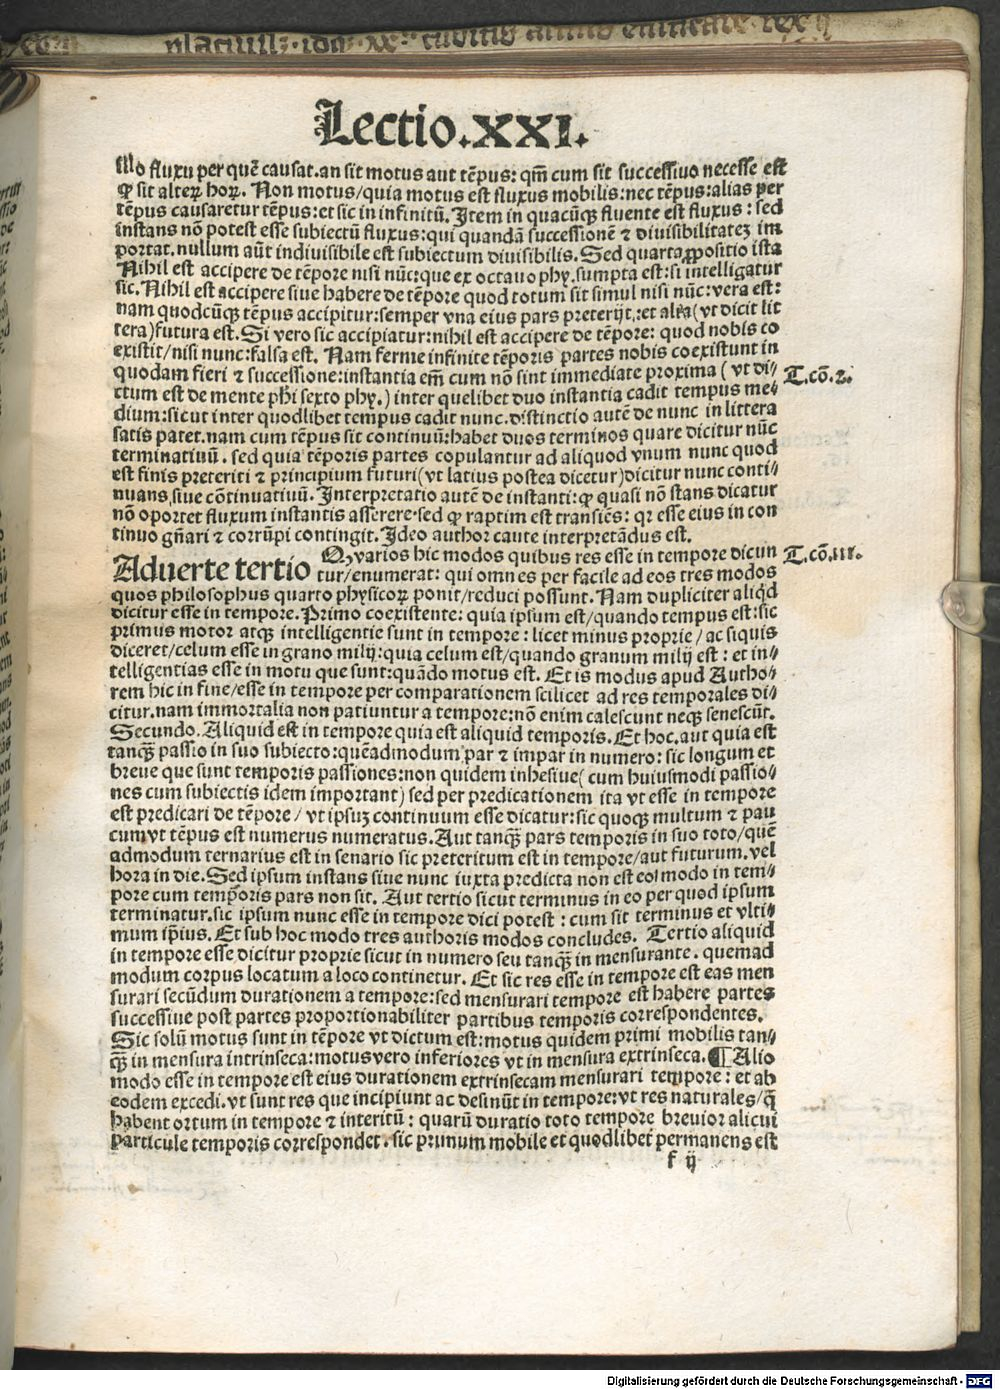 Lectio.XXI.
illo fluxu per quē causat.an sit motus aut tēpus: qm̄ cum sit successiuo necesse est
ꝙ sit alterꝝ horꝝ. Non motus/quia motus est fluxus mobilis:nec tēpus:alias per
tēpus causaretur tēpus:et sic in infinitū. Item in quacūqꝫ fluente est fluxus: sed
instans nō potest esse subiectū fluxus:qui quandā successionē ⁊ diuisibilitateꝫ im
portat.nullum aūt indiuisibile est subiectum diuisibilis. Sed quarta ꝓpositio ista
Nihil est accipere de tēpore nisi nūc:que ex octauo phy.sumpta est:si intelligatur
sic.Nihil est accipere siue habere de tēpore quod totum sit simul nisi nūc:vera est:
nam quodcūqꝫ tēpus accipitur:semper vna eius pars preterijt,:et alr̄a(vt dicit lit
tera)futura est. Si vero sic accipiatur:nihil est accipere de tēpore: quod nobis co
existit/nisi nunc:falsa est. Nam ferme infinite tēporis partes nobis coexistunt in
quodam fieri ⁊ successione:instantia em̄ cum nō sint immediate proxima (vt di⸗
T.cō.2.
ctum est de mente phi sexto phy.) inter quelibet duo instantia cadit tempus me⸗
dium:sicut inter quodlibet tempus cadit nunc.distinctio autē de nunc in littera
satis patet.nam cum tēpus sit continuū:habet duos terminos quare dicitur nūc
terminatiuū. sed quia tēporis partes copulantur ad aliquod vnum nunc quod
est finis preteriti ⁊ principium futuri(vt latius postea dicetur)dicitur nunc conti⸗
nuans,siue cōtinuatiuū. Interpretatio autē de instanti:ꝙ quasi nō stans dicatur
nō oportet fluxum instantis asserere.sed ꝙ raptim est transiēs: qꝛ esse eius in con
tinuo gn̄ari ⁊ corrūpi contingit. Ideo author caute interpretādus est.
Aduerte tertio Qꝫ varios hic modos quibus res esse in tempore dicun
T.cō.III.
tur/enumerat: qui omnes per facile ad eos tres modos
quos philosophus quarto physicoꝝ ponit/reduci possunt. Nam dupliciter aliqd
dicitur esse in tempore. Primo coexistente: quia ipsum est/quando tempus est:sic
primus motor atqꝫ intelligentie sunt in tempore : licet minus proprie/ ac siquis
diceret/celum esse in grano milij:quia celum est/quando granum milij est : et in⸗
telligentias esse in motu que sunt:quādo motus est. Et is modus apud Autho⸗
rem hic in fine/esse in tempore per comparationem scilicet ad res temporales di⸗
citur.nam immortalia non patiuntur a tempore:nō enim calescunt neqꝫ senescūt.
Secundo. Aliquid est in tempore quia est aliquid temporis. Et hoc.aut quia est
tanqꝫ̄ passio in suo subiecto:quēadmodum par ⁊ impar in numero: sic longum et
breue que sunt temporis passiones:non quidem inhesiue(cum huiusmodi passio⸗
nes cum subiectis idem important) sed per predicationem ita vt esse in tempore
est predicari de tēpore/ vt ipsuꝫ continuum esse dicatur:sic quoqꝫ multum ⁊ pau
cum vt tēpus est numerus numeratus. Aut tanqꝫ̄ pars temporis in suo toto/quē
admodum ternarius est in senario sic preteritum est in tempore/aut futurum.vel
hora in die. Sed ipsum instans siue nunc iuxta predicta non est eo modo in tem⸗
pore cum temporis pars non sit. Aut tertio sicut terminus in eo per quod ipsum
terminatur.sic ipsum nunc esse in tempore dici potest : cum sit terminus et vlti⸗
mum ip̄ius. Et sub hoc modo tres authoris modos concludes. Tertio aliquid
in tempore esse dicitur proprie sicut in numero seu tanqꝫ̄ in mensurante. quemad
modum corpus locatum a loco continetur. Et sic res esse in tempore est eas men
surari secūdum durationem a tempore:sed mensurari tempore est habere partes
successiue post partes proportionabiliter partibus temporis correspondentes.
Sic solū motus sunt in tēpore vt dictum est:motus quidem primi mobilis tan⸗
qꝫ̄ in mensura intrinseca:motus vero inferiores vt in mensura extrinseca. ¶ Alio
modo esse in tempore est eius durationem extrinsecam mensurari tempore: et ab
eodem excedi.vt sunt res que incipiunt ac desinūt in tempore:vt res naturales/q̄
habent ortum in tempore ⁊ interitū : quarū duratio toto tempore breuior alicui
particule temporis correspondet.sic primum mobile et quodlibet permanens est
f ij
Digitalisierung gefördert durch die Deutsche Forschungsgemeinschaft - DFG